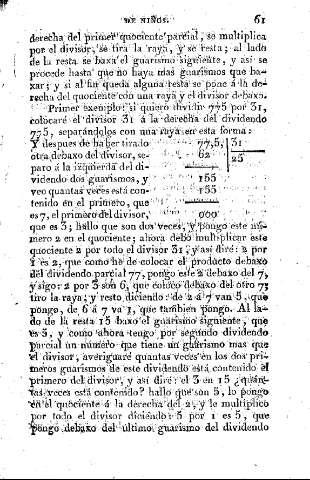 DE NIÑOS. 61
derecha del primer quociente parcial, se multiplica
por el divisor, se tira la raya, y se resta; al lado
de la resta se baxa el guarismo siguiente, y así se
procede hasta que no haya mas guarismos que ba-
xar; y si al fin queda alguna resta se pone á la de-
recha del quociente con una raya y el divisor debaxo.
Primer exemplo: si quiero dividir 775 por 31,
colocaré el divisor 31 á la derecha del dividendo
775, separándolos con una raya en esta forma:
Y despues de haber tirado 77,5, 31
otra debaxo del divisor, se- 62 25
paro á la izquierda del di-
videndo dos guarismos, y 155
veo quantas veces está con- 155
tenido en el primero, que
es 7, el primero del divisor, 000
que es 3; hallo que son dos veces, y pongo este nú-
mero 2 en el quociente; ahora debo multiplicar este
quociente 2 por todo el divisor 31, y así diré: 2 por
1 es 2, que como he de colocar el producto debaxo
del dividendo parcial 77, pongo este 2 debaxo del 7,
y sigo: 2 por 3 son 6, que coloco debaxo del otro 7;
tiro la raya; y resto diciendo: de 2 á 7 van 5, que
pongo, de 6 á 7 va 1, que tambien pongo. Al la-
do de la resta 15 baxo el guarismo siguiente, que
es 5, y como ahora tengo por segundo dividendo
parcial un número que tiene un guarismo mas que
el divisor, averiguaré quantas veces en los dos pri-
meros guarismos de este dividendo está contenido el
primero del divisor, y así diré: el 3 en 15 ¿quan-
tas veces está contenido? hallo que son 5, lo pongo
en el quociente á la derecha del 2, y le multiplico
por todo el divisor diciendo: 5 por 1 es 5, que
pongo debaxo del último guarismo del dividendo